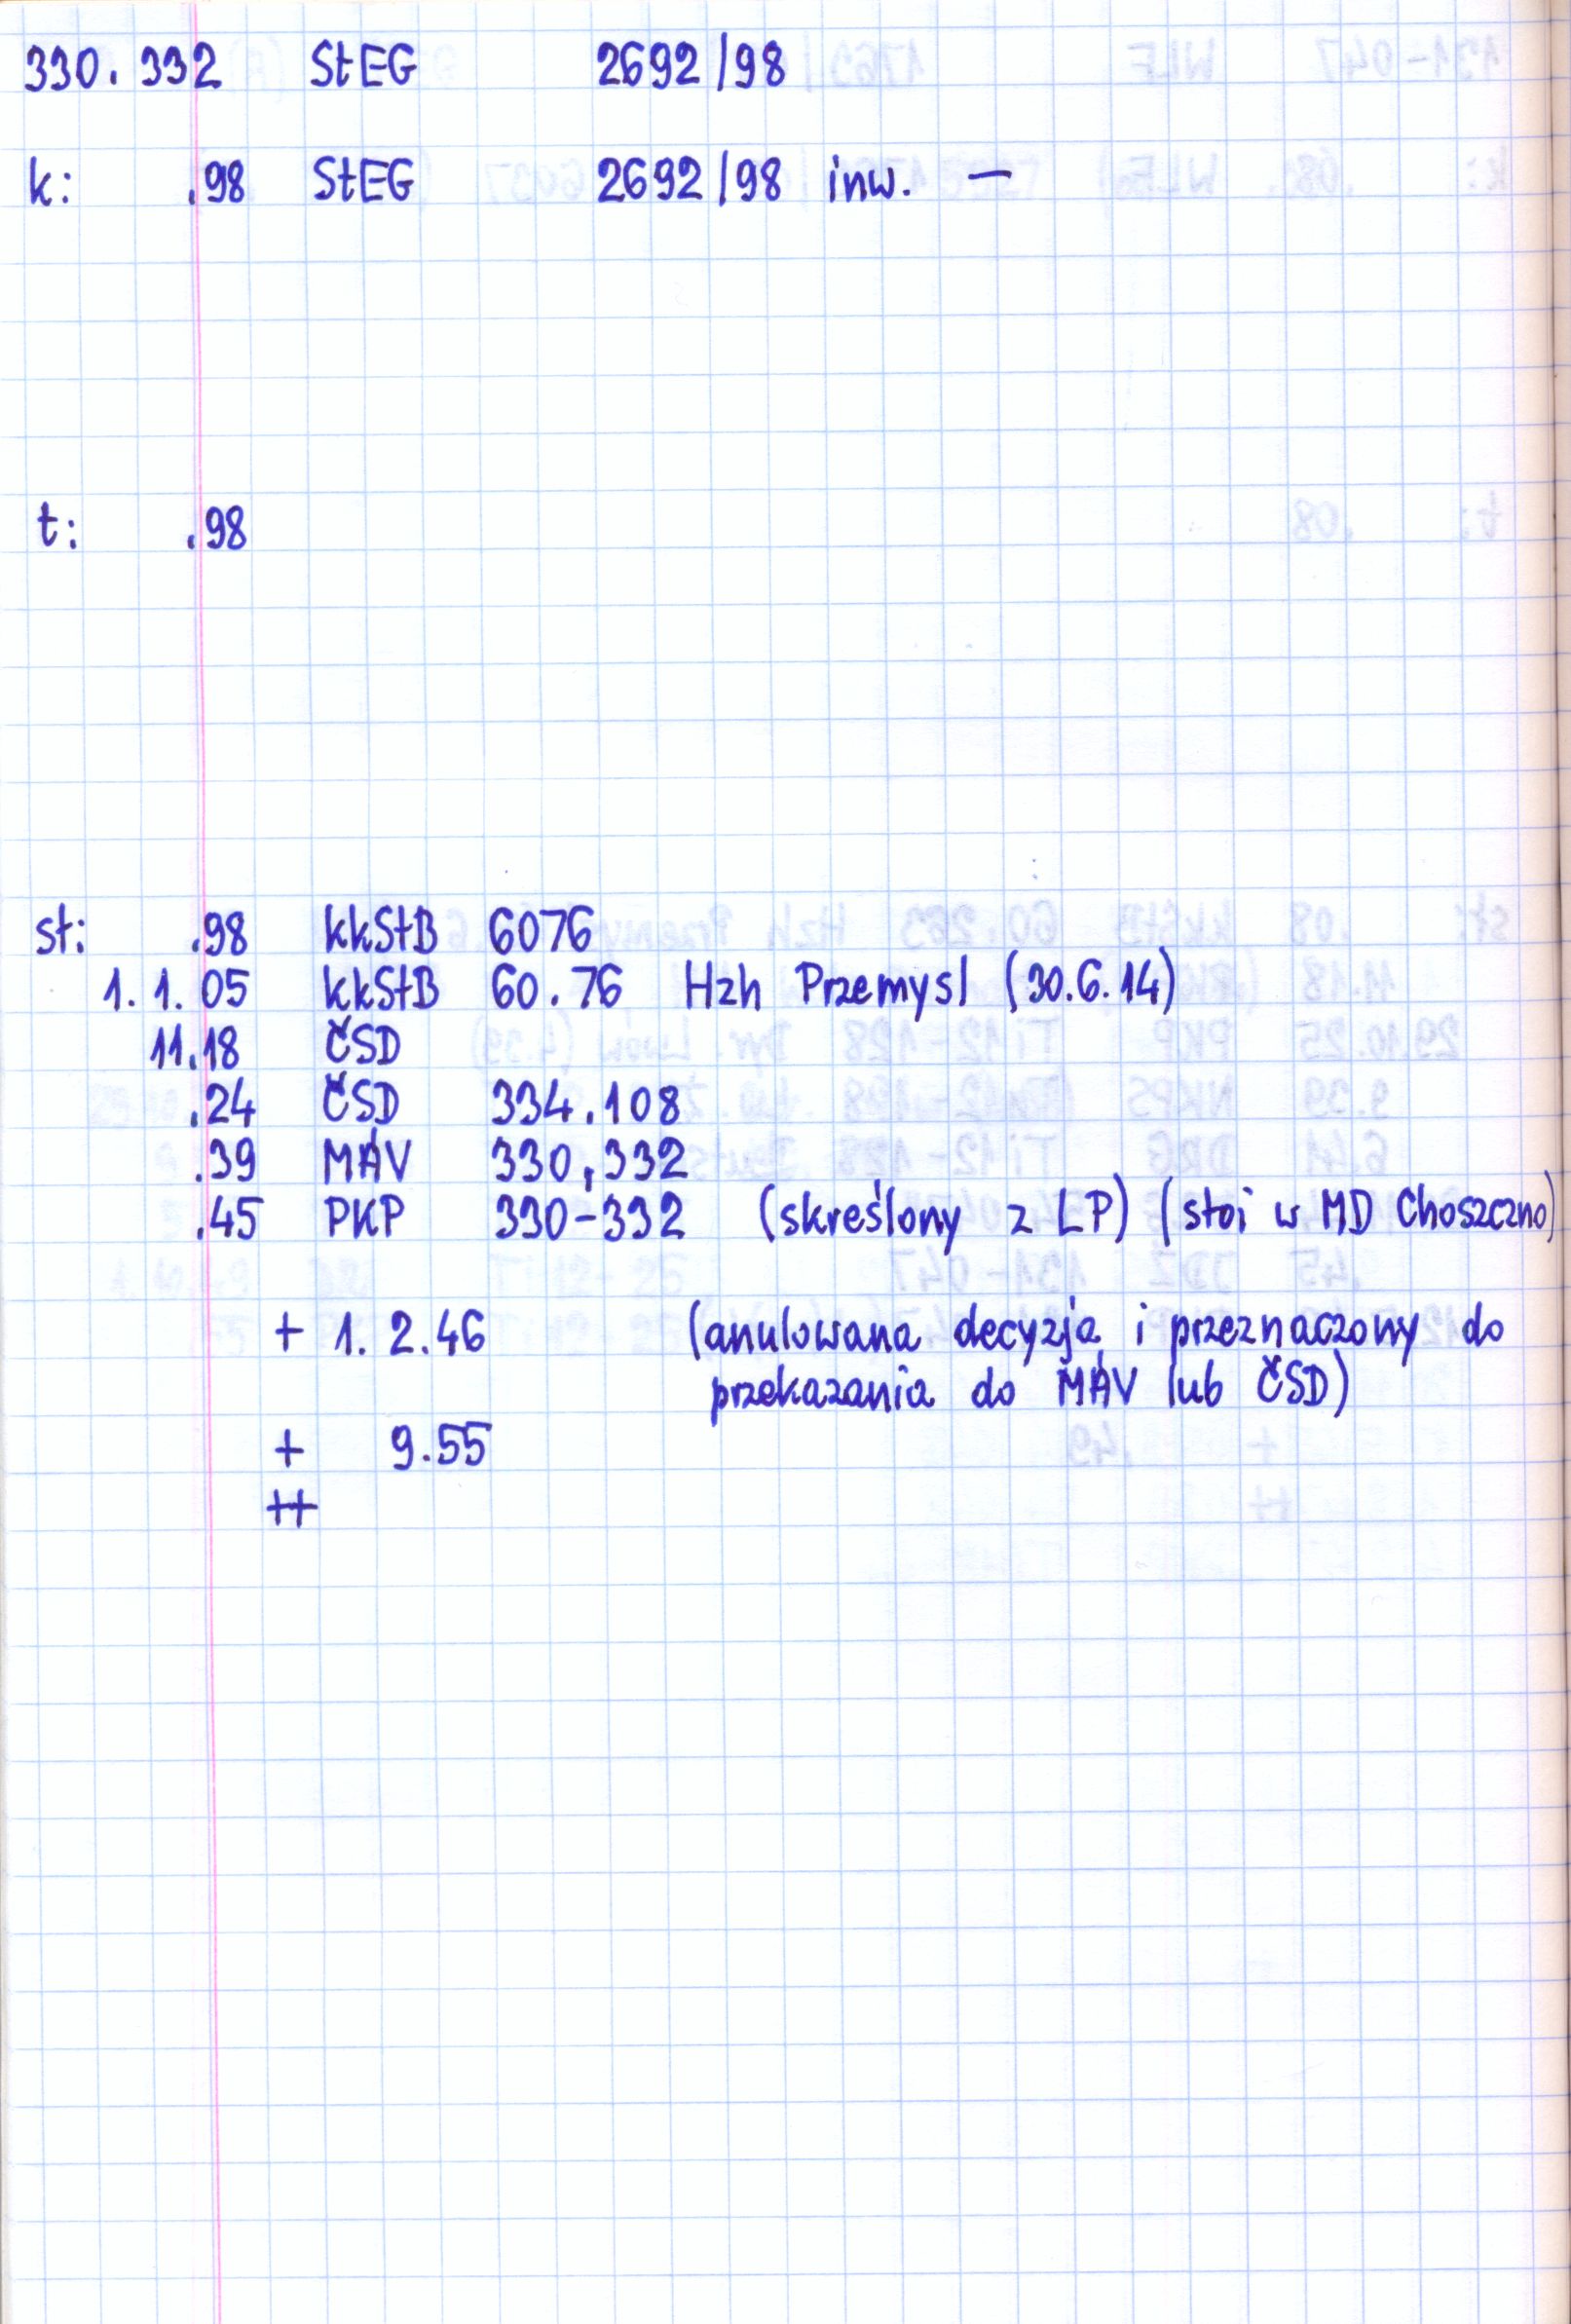 330.332 StEG 2692/98
k: .98 StEG 2692/98 inw. —
t: .98
st: .98 kkStB 6076
1.1.05 kkStB 60.76 Hzh Przemysl (30.6.14)
11.18 ČSD
.24 ČSD 334.108
.39 MÁV 330,332
.45 PKP 330-332 (skreślony z LP) (stoi w MD Choszczno)
+ 1.2.46 (anulowana decyzja i przeznaczony do
przekazania do MÁV lub ČSD)
+ 9.55
++